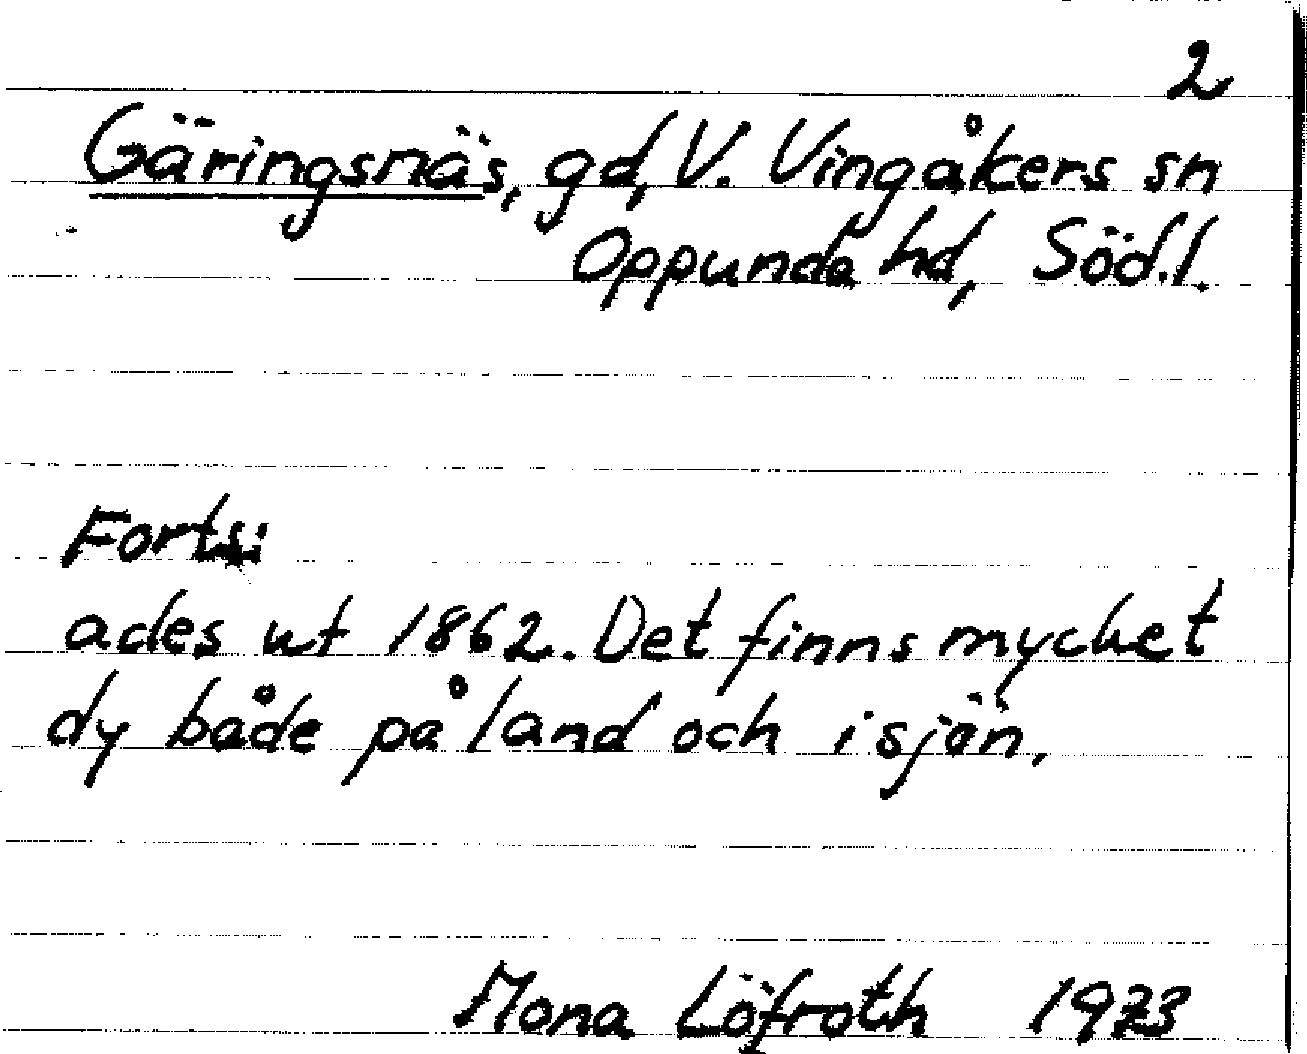 2
Gäringsnäs, gd, V. Vingåkers sn
Oppunda hd, Söd.l.
Forts:
ades ut 1862. Det finns mycket
dy både på land och i sjön.
Mona Löfroth 1973